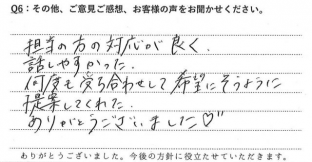 Q6：その他、ご意見ご感想、お客様の声をお聞かせください。
担当の方の対応が良く、
話しやすかった。
何度も打ち合わせして希望にそうように
提案してくれた。
ありがとうございました♡"
ありがとうございました。今後の方針に役立たせていただきます。